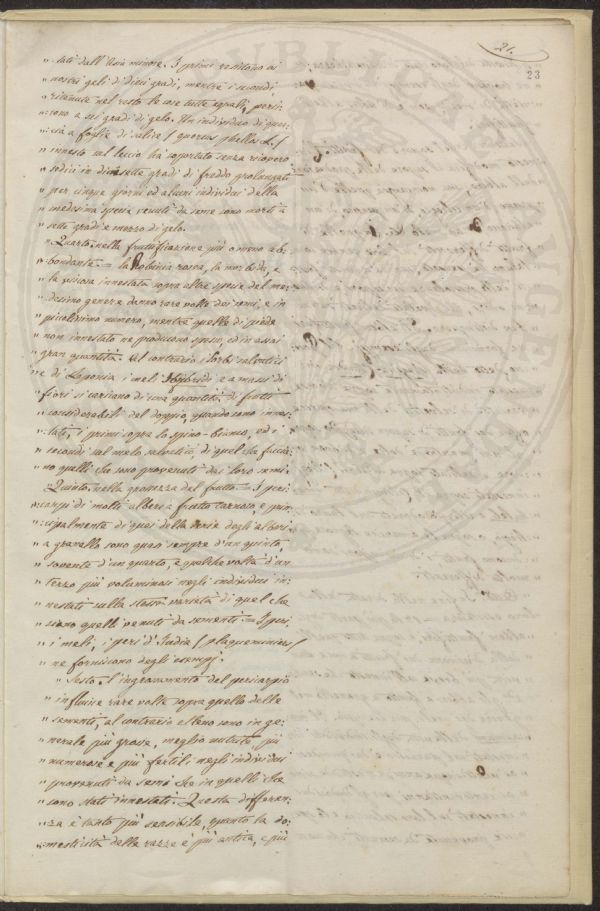 21.
23
" tati dall' Asia minore. I primi resistono ai
" nostri geli di dieci gradi, mentre i secondi
" ritenute nel resto le cose tutte eguali, peri:
" scono a sei gradi di gelo. Un individuo di quer:
" cia a foglie di salice / quercus phellos L. /
" innesto sul leccio ha sopportato senza ricovero
" sedici in diciasette gradi di freddo prolungati
" per cinque giorni ed alcuni individui della
" medesima specie, venuti da seme sono morti a
" sette gradi e mezzo di gelo.
" Quarto. nella fruttificazione più o meno ab:
" bondante = la Robinia rosea, la morbida, e
" la viscosa innestata sopra altre specie del me:
" desimo genere danno rare volte dei semi, e in
" piccolissimo numero, mentre quelle di piede
" non innestato ne producono spesso, ed in assai
" gran quantità. Al contrario i Sorbi salvatici
" e di Laponia i meli Hybrido e a mazzi di
" fiori si caricano di una quantità di frutti
" considerabili del doppio, quando sono innes:
" tati, i primi sopra lo spino-bianco, ed i
" secondi sul melo selvatico, di quel che faccia:
" no quelli che sono provenuti dai loro semi.
" Quinto. nella grossezza del frutto = I peri:
" carpi di molti alberi a frutto carnoso, e prin:
" cipalmente di quei della serie degli alberi
" a granello sono quasi sempre d'un quinto,
" sovente d'un quarto, e qualche volta d'un
" terzo più voluminosi negli individui in:
" nestati sulla stessa varietà di quel che
" siano quelli venuti da sementi = I peri,
" i meli, i peri d'India / plaqueminiers /
" ne forniscono degli esempj.
" Sesto. l'ingrossamento del pericarpio
" influisce rare volte sopra quello delle
" sementi, al contrario elleno sono in ge:
" nerale più grosse, meglio nutrite più
" numerose e più fertili negli individui
" provenuti da semi che in quelli che
" sono stati innestati. Questa differen:
" za è tanto più sensibile, quanto la do:
" mesticità delle razze è più antica, e più